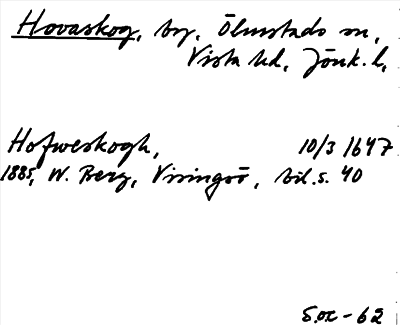 Hovaskog, by, Ölmstads sn,
Vista hd, Jönk. l,
Hofweskogh, 10/3 1647
1885, W. Berg, Visingsö, bil. s. 40